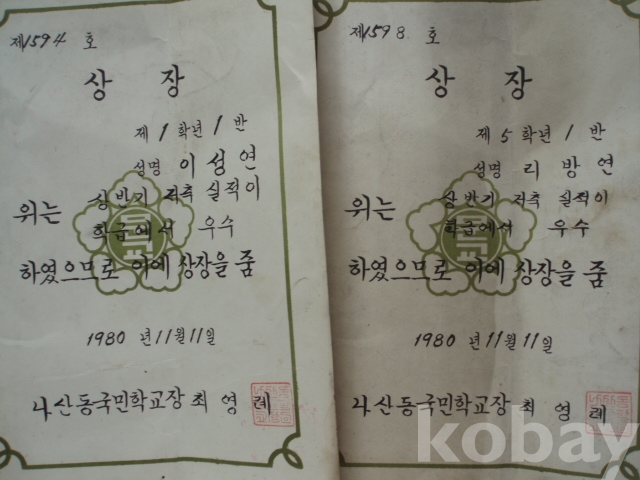 제1594 호
상 장
제 1 학년 1 반
성명 이 성 연
위는 상반기 저축 실적이
학급에서 우수
하였으므로 이에 상장을 줌
1980 년 11월 11일
나산동국민학교장 최 영 례
제1598 호
상 장
제 5 학년 1 반
성명 리 방 연
위는 상반기 저축 실적이
학급에서 우수
하였으므로 이에 상장을 줌
1980 년 11월 11일
나산동국민학교장 최 영 례
kobay